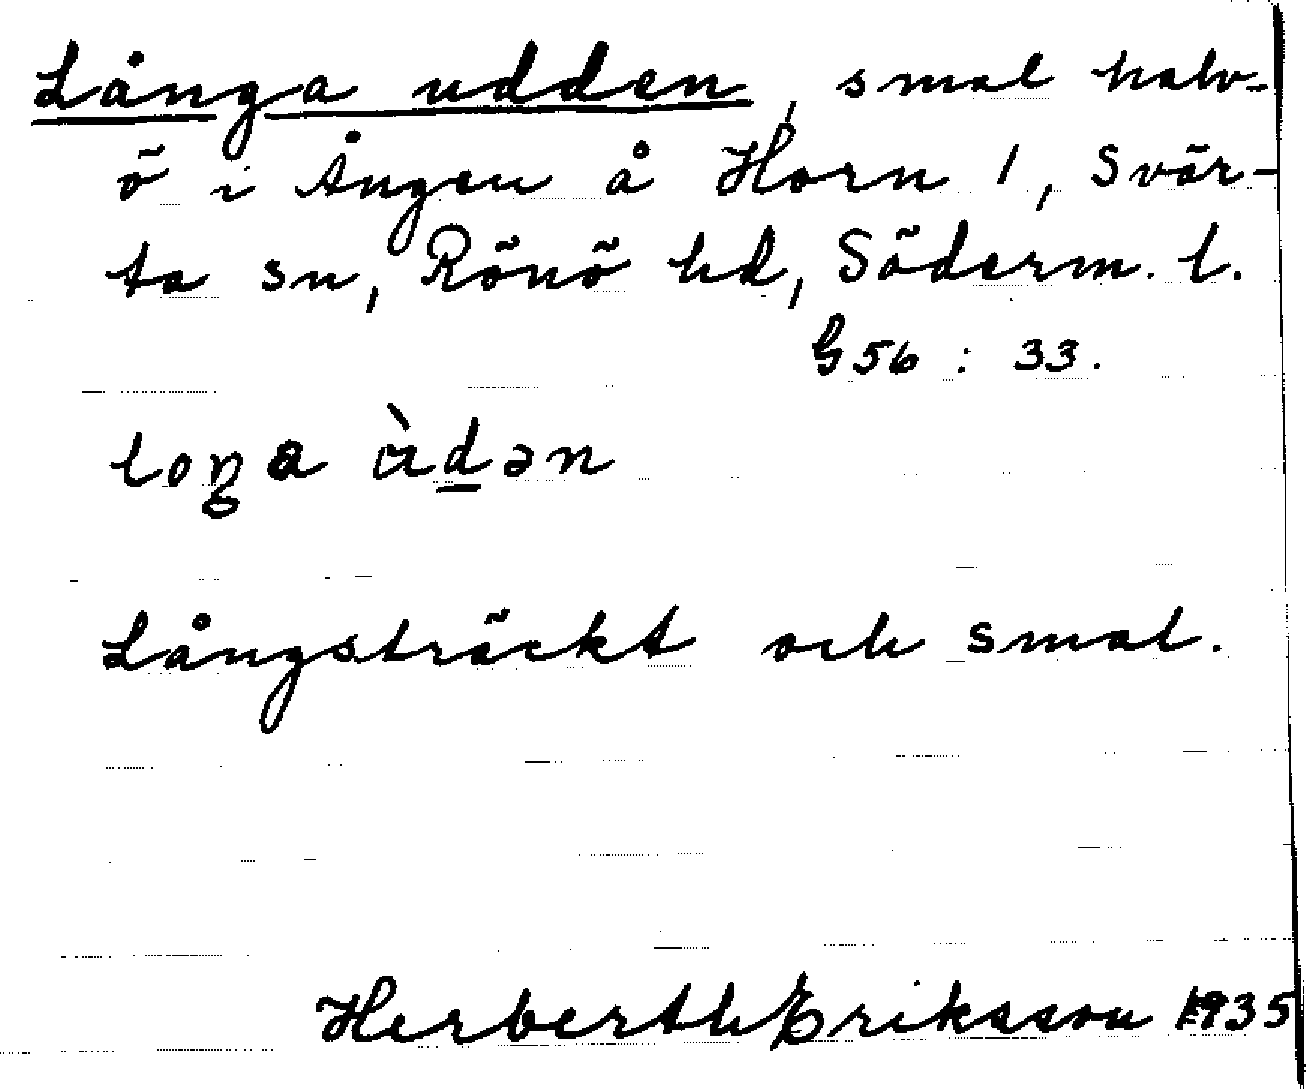 Långa udden, smal halv-
ö i Ången å Horn 1, Svär-
ta sn, Rönö hd, Söderm. l.
G56 : 33.
Långsträckt och smal.
Herberth Eriksson 1935